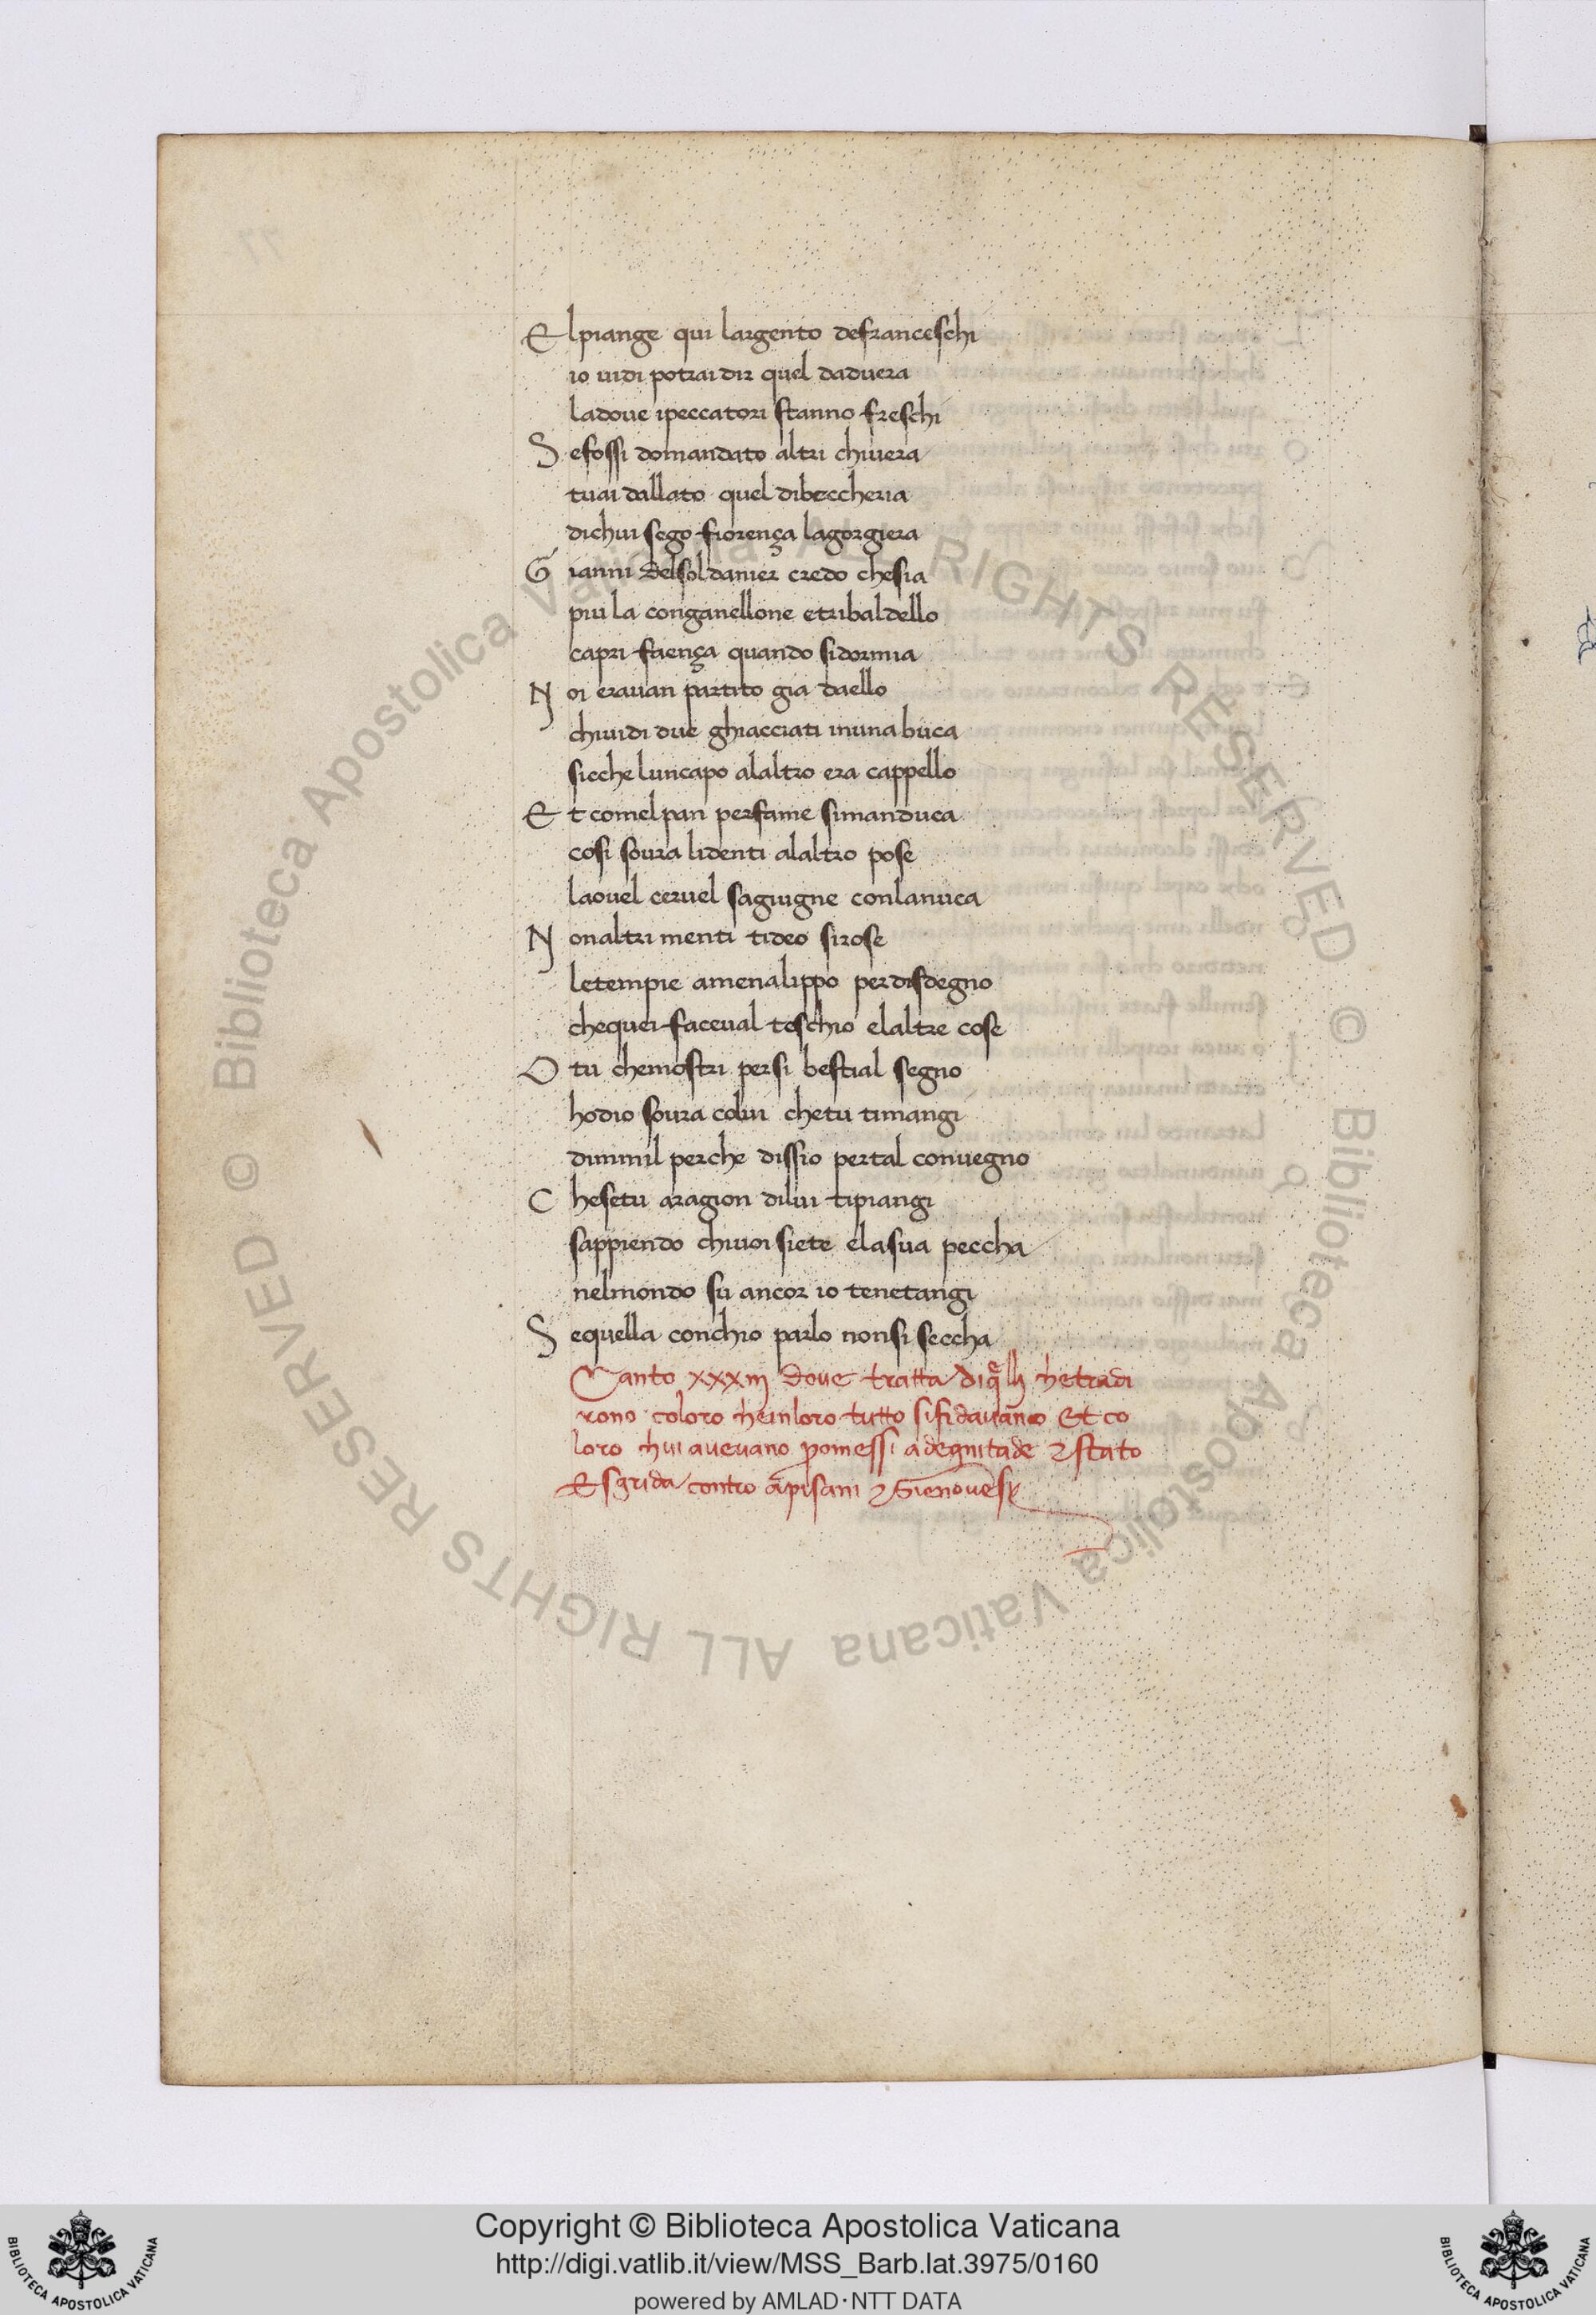 Elpiange qui largento defranceschi
io uidi potrai dir quel daduera
ladoue ipeccatori stanno freschi
Sefossi domandato altri chiuera
tuai dallato quel dibeccheria
dichui sego fiorença lagorgiera
Gianni delsoldanier credo chesia
piu la conganellone etribaldello
capri faença quando sidormia
Noi erauan partito gia daello
chiuidi due ghiacciati inuna buca
sicche luncapo alaltro era cappello
Et comelpan perfame simanduca
cosi soura lidenti alaltro pose
laouel ceruel sagiugne conlanuca
Nonaltri menti tideo sirose
letempie amenalippo perdisdegno
chequei faceual teschio elaltre cose
O tu chemostri persi bestial segno
hodio soura colui chetu timangi
dimmil perche dissio pertal conuegno
Chesetu aragion dilui tipiangi
sappiendo chiuoi siete elasua peccha
nelmondo su ancor io tenetangi
Sequella conchio parlo nonsi seccha
Canto xxxiii doue tratta diq̃lli chetradi
rono coloro cheinloro tutto sifidauano Et co
loro chui aueuano promessi adegnitade & stato
Esgrida contro a pisani & Gienouesi
© Biblioteca Apostolica Vaticana ALL RIGHTS RESERVED © Biblioteca Apostolica Vaticana ALL RIGHTS RESERVED
Copyright © Biblioteca Apostolica Vaticana
http://digi.vatlib.it/view/MSS_Barb.lat.3975/0160
powered by AMLAD·NTT DATA
BIBLIOTECA APOSTOLICA VATICANA
BIBLIOTECA APOSTOLICA VATICANA